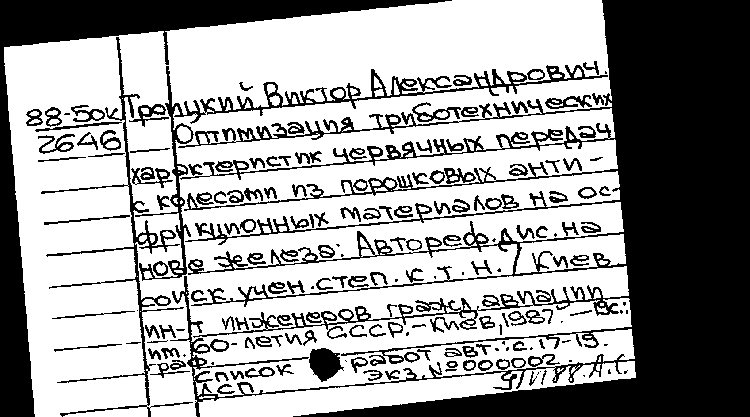 Троицкий, Виктор Александрович.
88-5ок
2646
Оптимизация триботехнических
характеристик червячных передач
с колесами из порошковых анти-
фрикционных материалов на ос-
нове железа: Автореф. дис. на
соиск. учен. степ. к. т. н. / Киев.
ин-т инженеров гражд. авиации
им. 60-летия СССР. - Киев, 1987. - 19с.:
граф.
Список работ авт.: с. 17-19.
ДСП. Экз. № 000002.